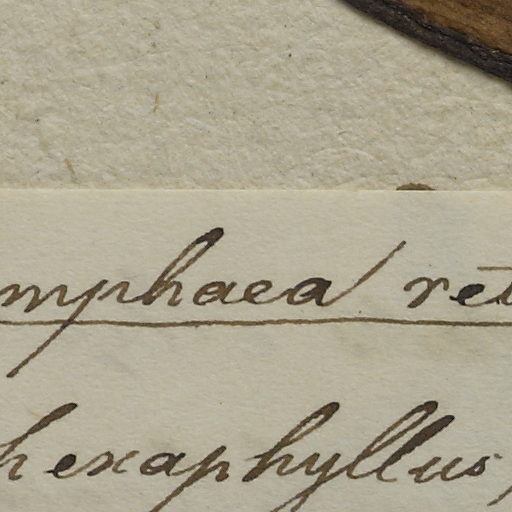 mphaea ret
hexaphyllus,